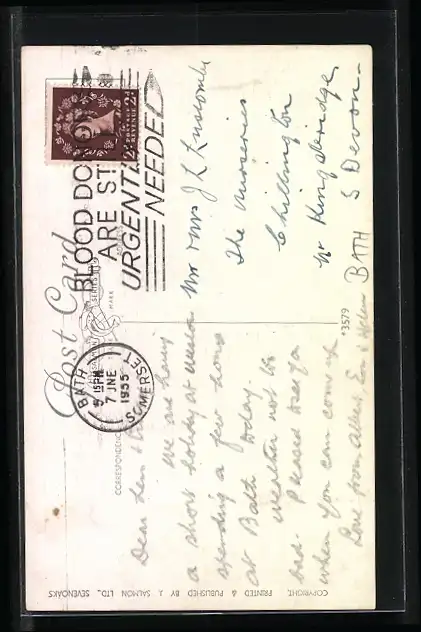 Post Card
BLOOD DO
ARE ST
URGENT
NEEDED
POSTAGE REVENUE
2D 2D
BATH
5 15 PM
7 JNE
1955
SOMERSET
CORRESPONDENCE
Dear Len &
We are having
a short holiday at Weston
spending a few hours
at Bath today.
Weather not too
bad. Pleased to see you
when you can come up
Love from Albert, Em & Helen
BATH
Mr & Mrs J L Luscombe
The Nurseries
Chillington
Nr Kingsbridge
S Devon
*3579
COPYRIGHT, PRINTED & PUBLISHED BY J. SALMON LTD., SEVENOAKS